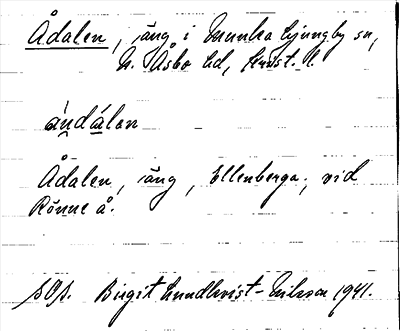 Ådalen, äng i Munka Ljungby sn,
N. Åsbo hd, Krist. l.
ándálən
Ådalen, äng, Ellenberga, vid
Rönne å.
SOA. Birgit Lundkvist-Nilsson 1941.